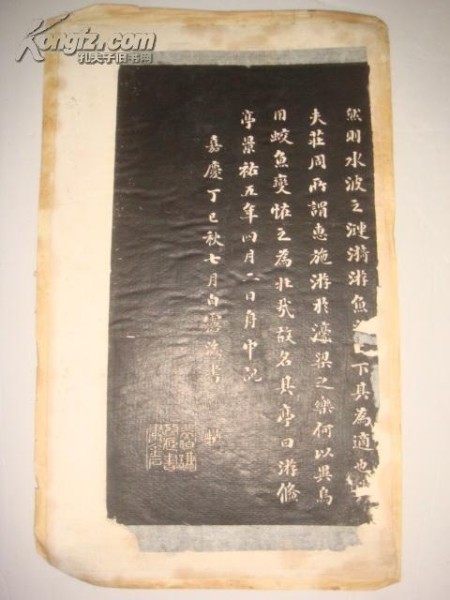 Kongfz.com
孔夫子旧书网
然則水波之漣漪游魚之下其為適也
夫莊周所謂惠施游於濠梁之樂何以異烏
用蛟魚變怪之為壯哉故名其亭曰游鯈
亭景祐五年四月二日舟中記
嘉慶丁巳秋七月白書